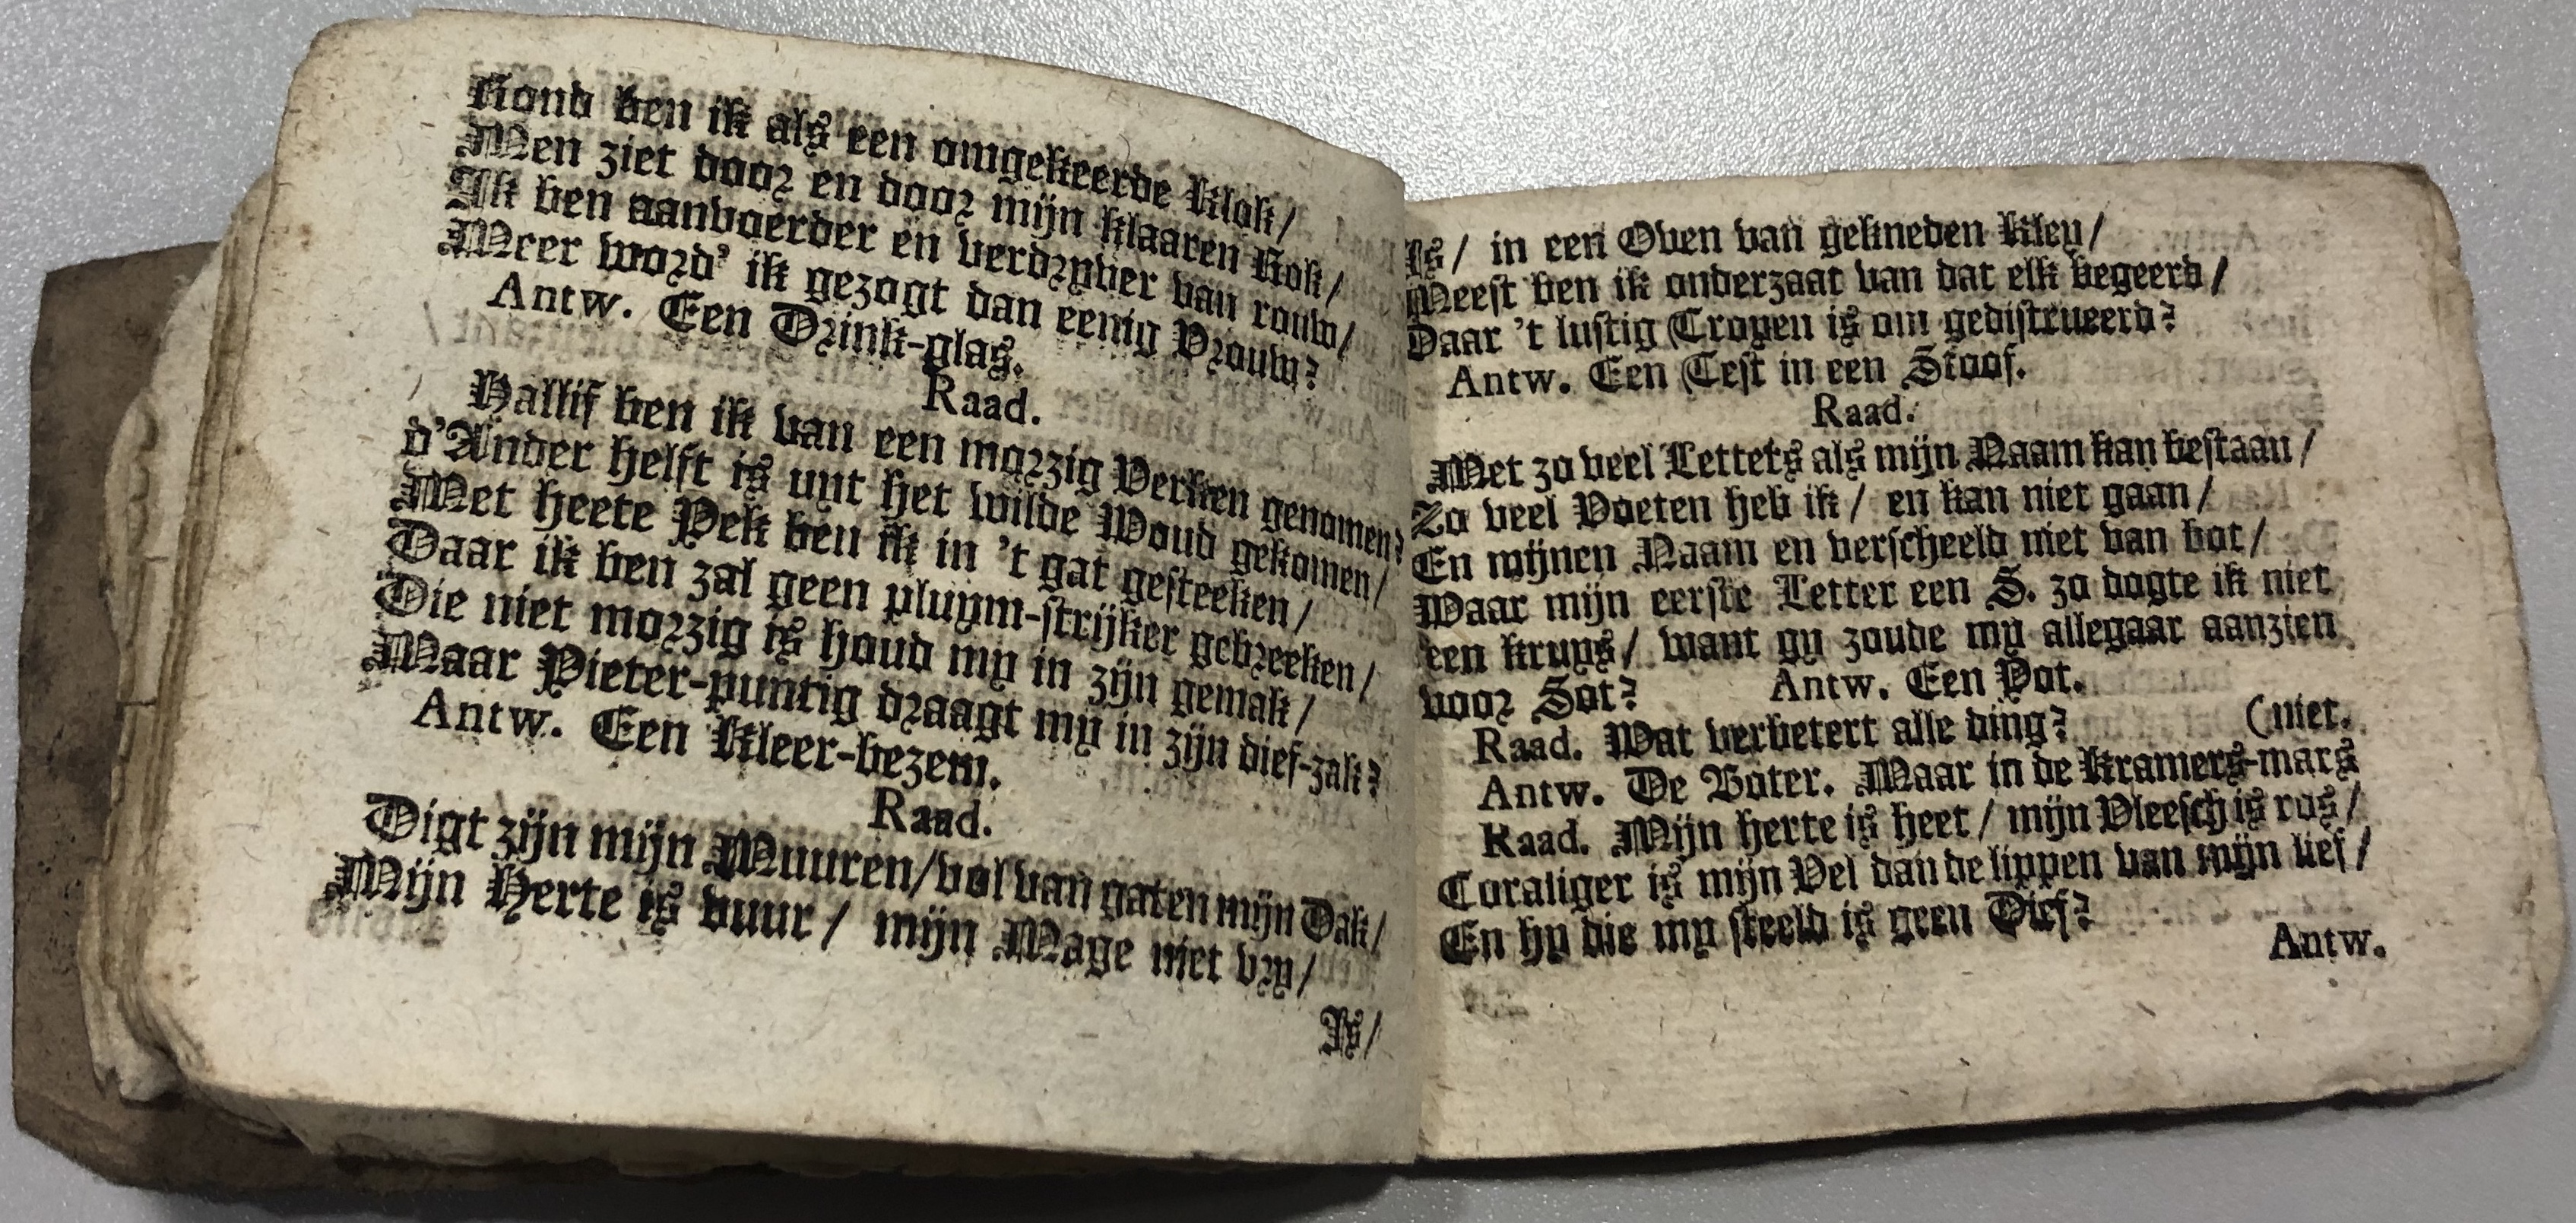 Rond ben ik als een omgekeerde Klok/
Men ziet door en door mijn klaaren Rok/
Ik ben aanvoerder en verdryver van rouw/
Meer word' ik gezogt dan eenig Vrouw?
Antw. Een Drink-glas.
Raad.
Hallif ben ik van een morzig Verken genomen?
d'Ander helft is uyt het wilde Woud gekomen/
Met heete Pek ben ik in 't gat gesteeken/
Daar ik ben zal geen pluym-strijker gebreeken/
Die niet morzig is houd my in zijn gemak/
Maar Pieter-puntig draagt my in zijn dief-zak?
Antw. Een Kleer-bezem.
Raad.
Digt zijn mijn Muuren/vol van gaten mijn Dak/
Mijn Herte is vuur/ mijn Mage niet vry/
Is/
Is/ in een Oven van gekneden Kley/
Meest ben ik onderzaat van dat elk begeerd/
Daar 't lustig Troyen is om gedistrueerd?
Antw. Een Test in een Stoof.
Raad.
Met zo veel Lettets als mijn Naam kan bestaan/
Zo veel Voeten heb ik/ en kan niet gaan/
En mijnen Naam en verscheeld niet van bot/
Waar mijn eerste Letter een S. zo dogte ik niet
een kruys/ want gy zoude my allegaar aanzien
voor Sot? Antw. Een Pot.
Raad. Wat verbetert alle ding? (niet.
Antw. De Boter. Maar in de Kramers-mars
Raad. Mijn herte is heet/ mijn Vleesch is ros/
Coraliger is mijn Vel dan de lippen van mijn lief/
En hy die my steeld is geen Dief?
Antw.